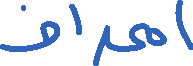 اهداف